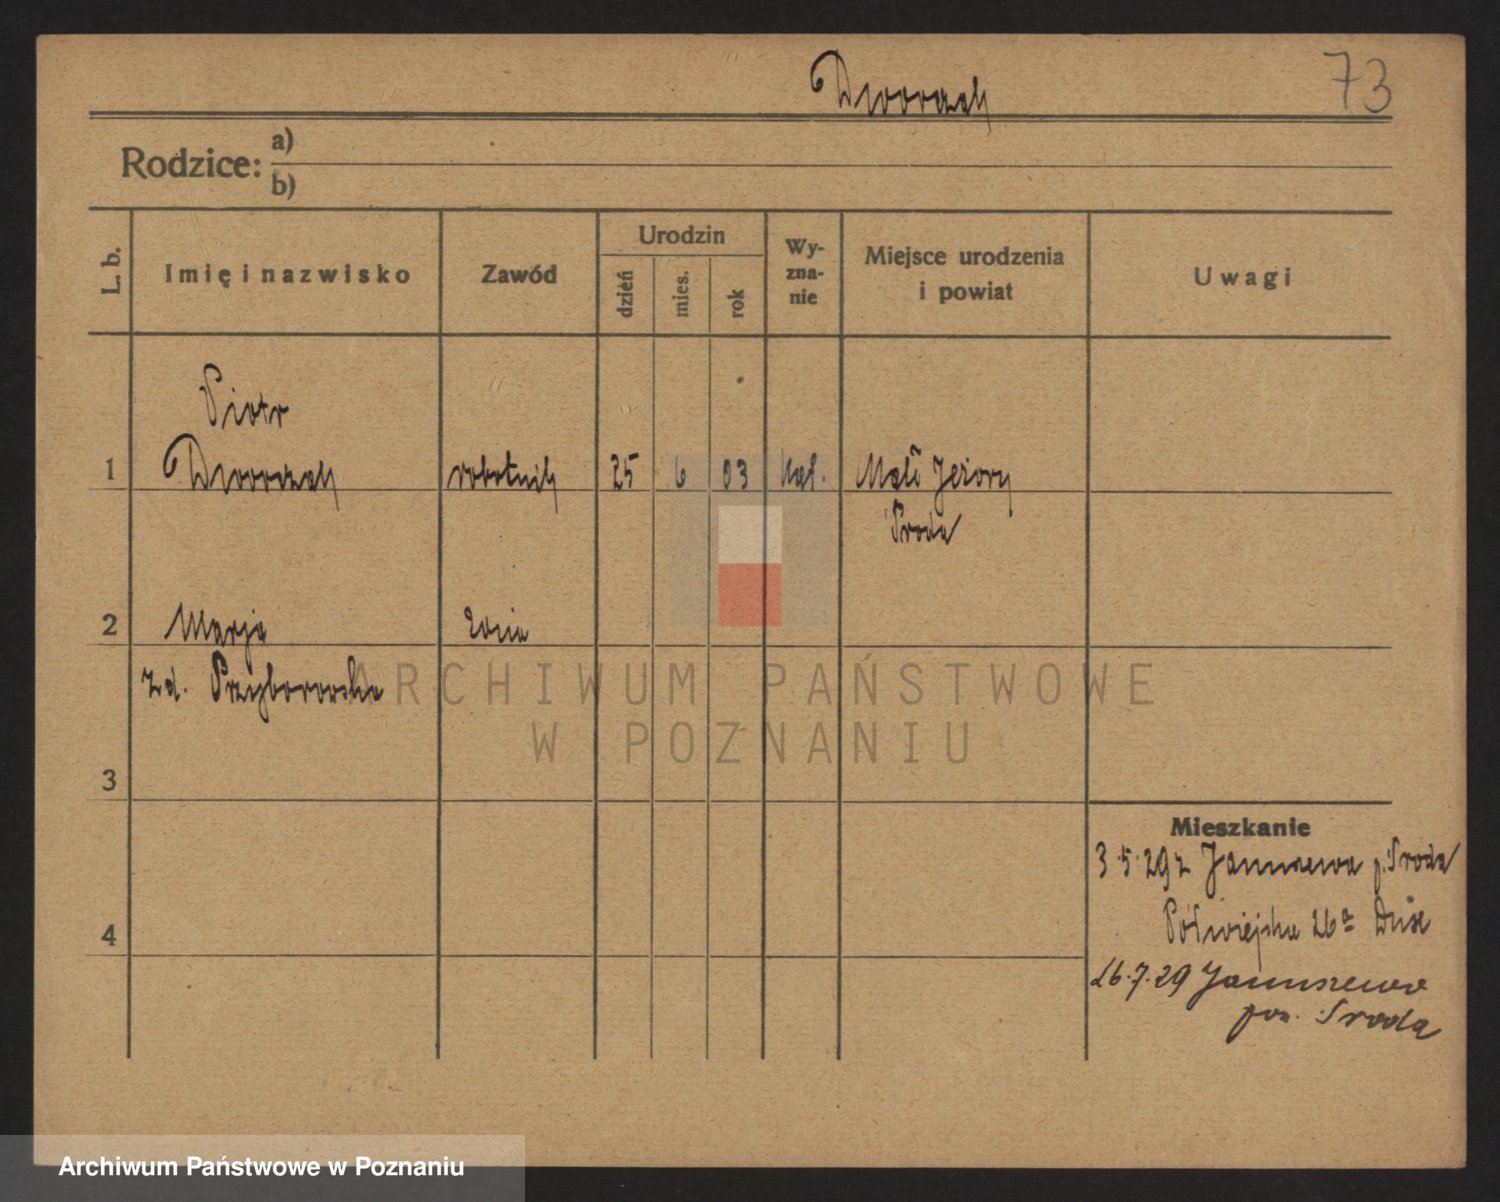 Dworzak
73
Rodzice: a)
b)
L. b.
Imię i nazwisko
Zawód
Urodzin
dzień
mies.
rok
Wy-
zna-
nie
Miejsce urodzenia
i powiat
Uwagi
Piotr
1 Dworzak robotnik 25 6 03 kat. Małe Jeziory
Środa
2 Marja żona
zd. Przyborowska
ARCHIWUM PAŃSTWOWE
W POZNANIU
3
Mieszkanie
3.5.29 z Januszewa p. Środa
Półwiejska 26a
4
26.7.29 Januszewo
pow. Środa
Archiwum Państwowe w Poznaniu